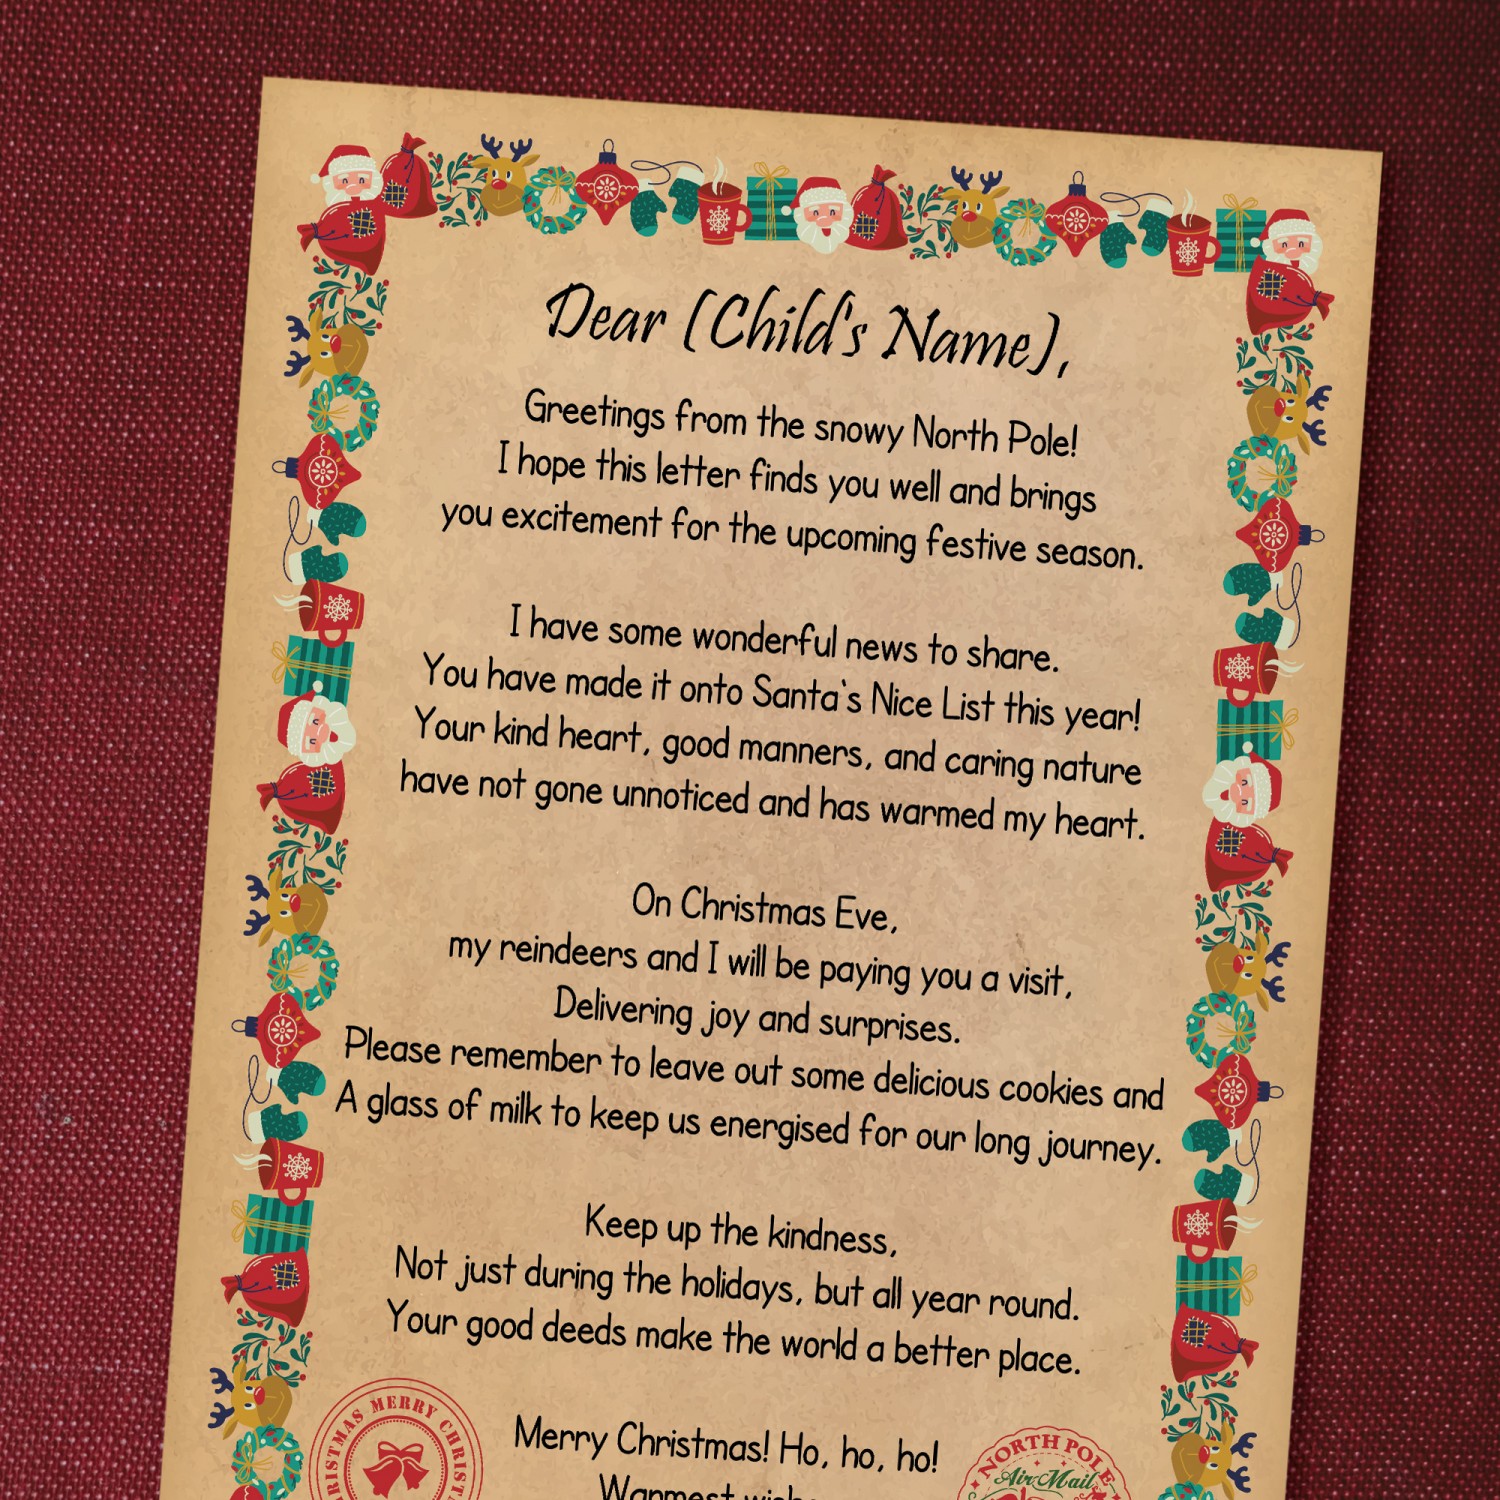 Dear [Child's Name],
Greetings from the snowy North Pole!
I hope this letter finds you well and brings
you excitement for the upcoming festive season.
I have some wonderful news to share.
You have made it onto Santa's Nice List this year!
Your kind heart, good manners, and caring nature
have not gone unnoticed and has warmed my heart.
On Christmas Eve,
my reindeers and I will be paying you a visit,
Delivering joy and surprises.
Please remember to leave out some delicious cookies and
A glass of milk to keep us energised for our long journey.
Keep up the kindness,
Not just during the holidays, but all year round.
Your good deeds make the world a better place.
Merry Christmas! Ho, ho, ho!
Warmest
MERRY
NORTH POLE
Air Mail